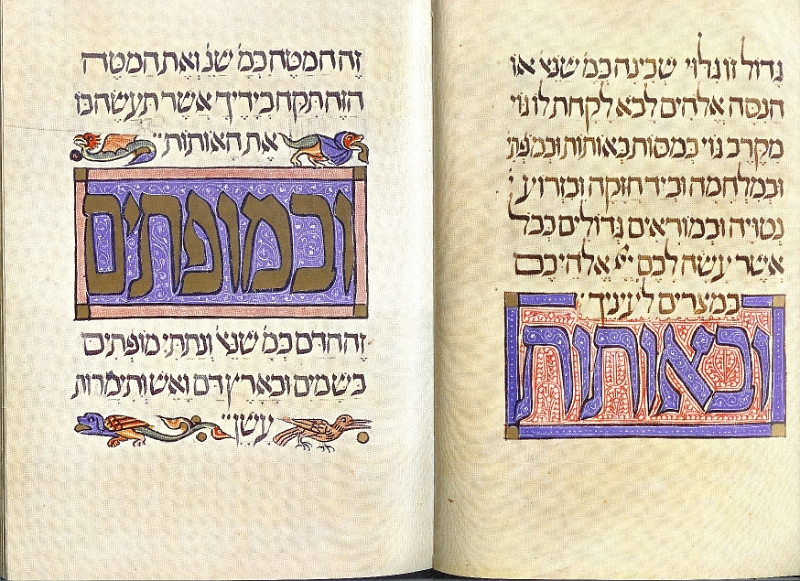 גדול זו גלוי שכינה כמ׳ שנא׳ או
הנסה אלהים לבא לקחת לו גוי
מקרב גוי במסות באותות ובמפת׳
ובמלחמה וביד חזקה ובזרוע
נטויה ובמוראים גדולים ככל
אשר עשה לכם ייי אלהיכם
במצרים לעיניך
ובאותות
זה המטה כמ׳ שנ׳ ואת המטה
הזה תקח בידיך אשר תעשה בו
את האותות
ובמופתים
זה הדם כמ׳ שנא׳ ונתתי מופתים
בשמים ובארץ דם ואש ותימרות
עשן